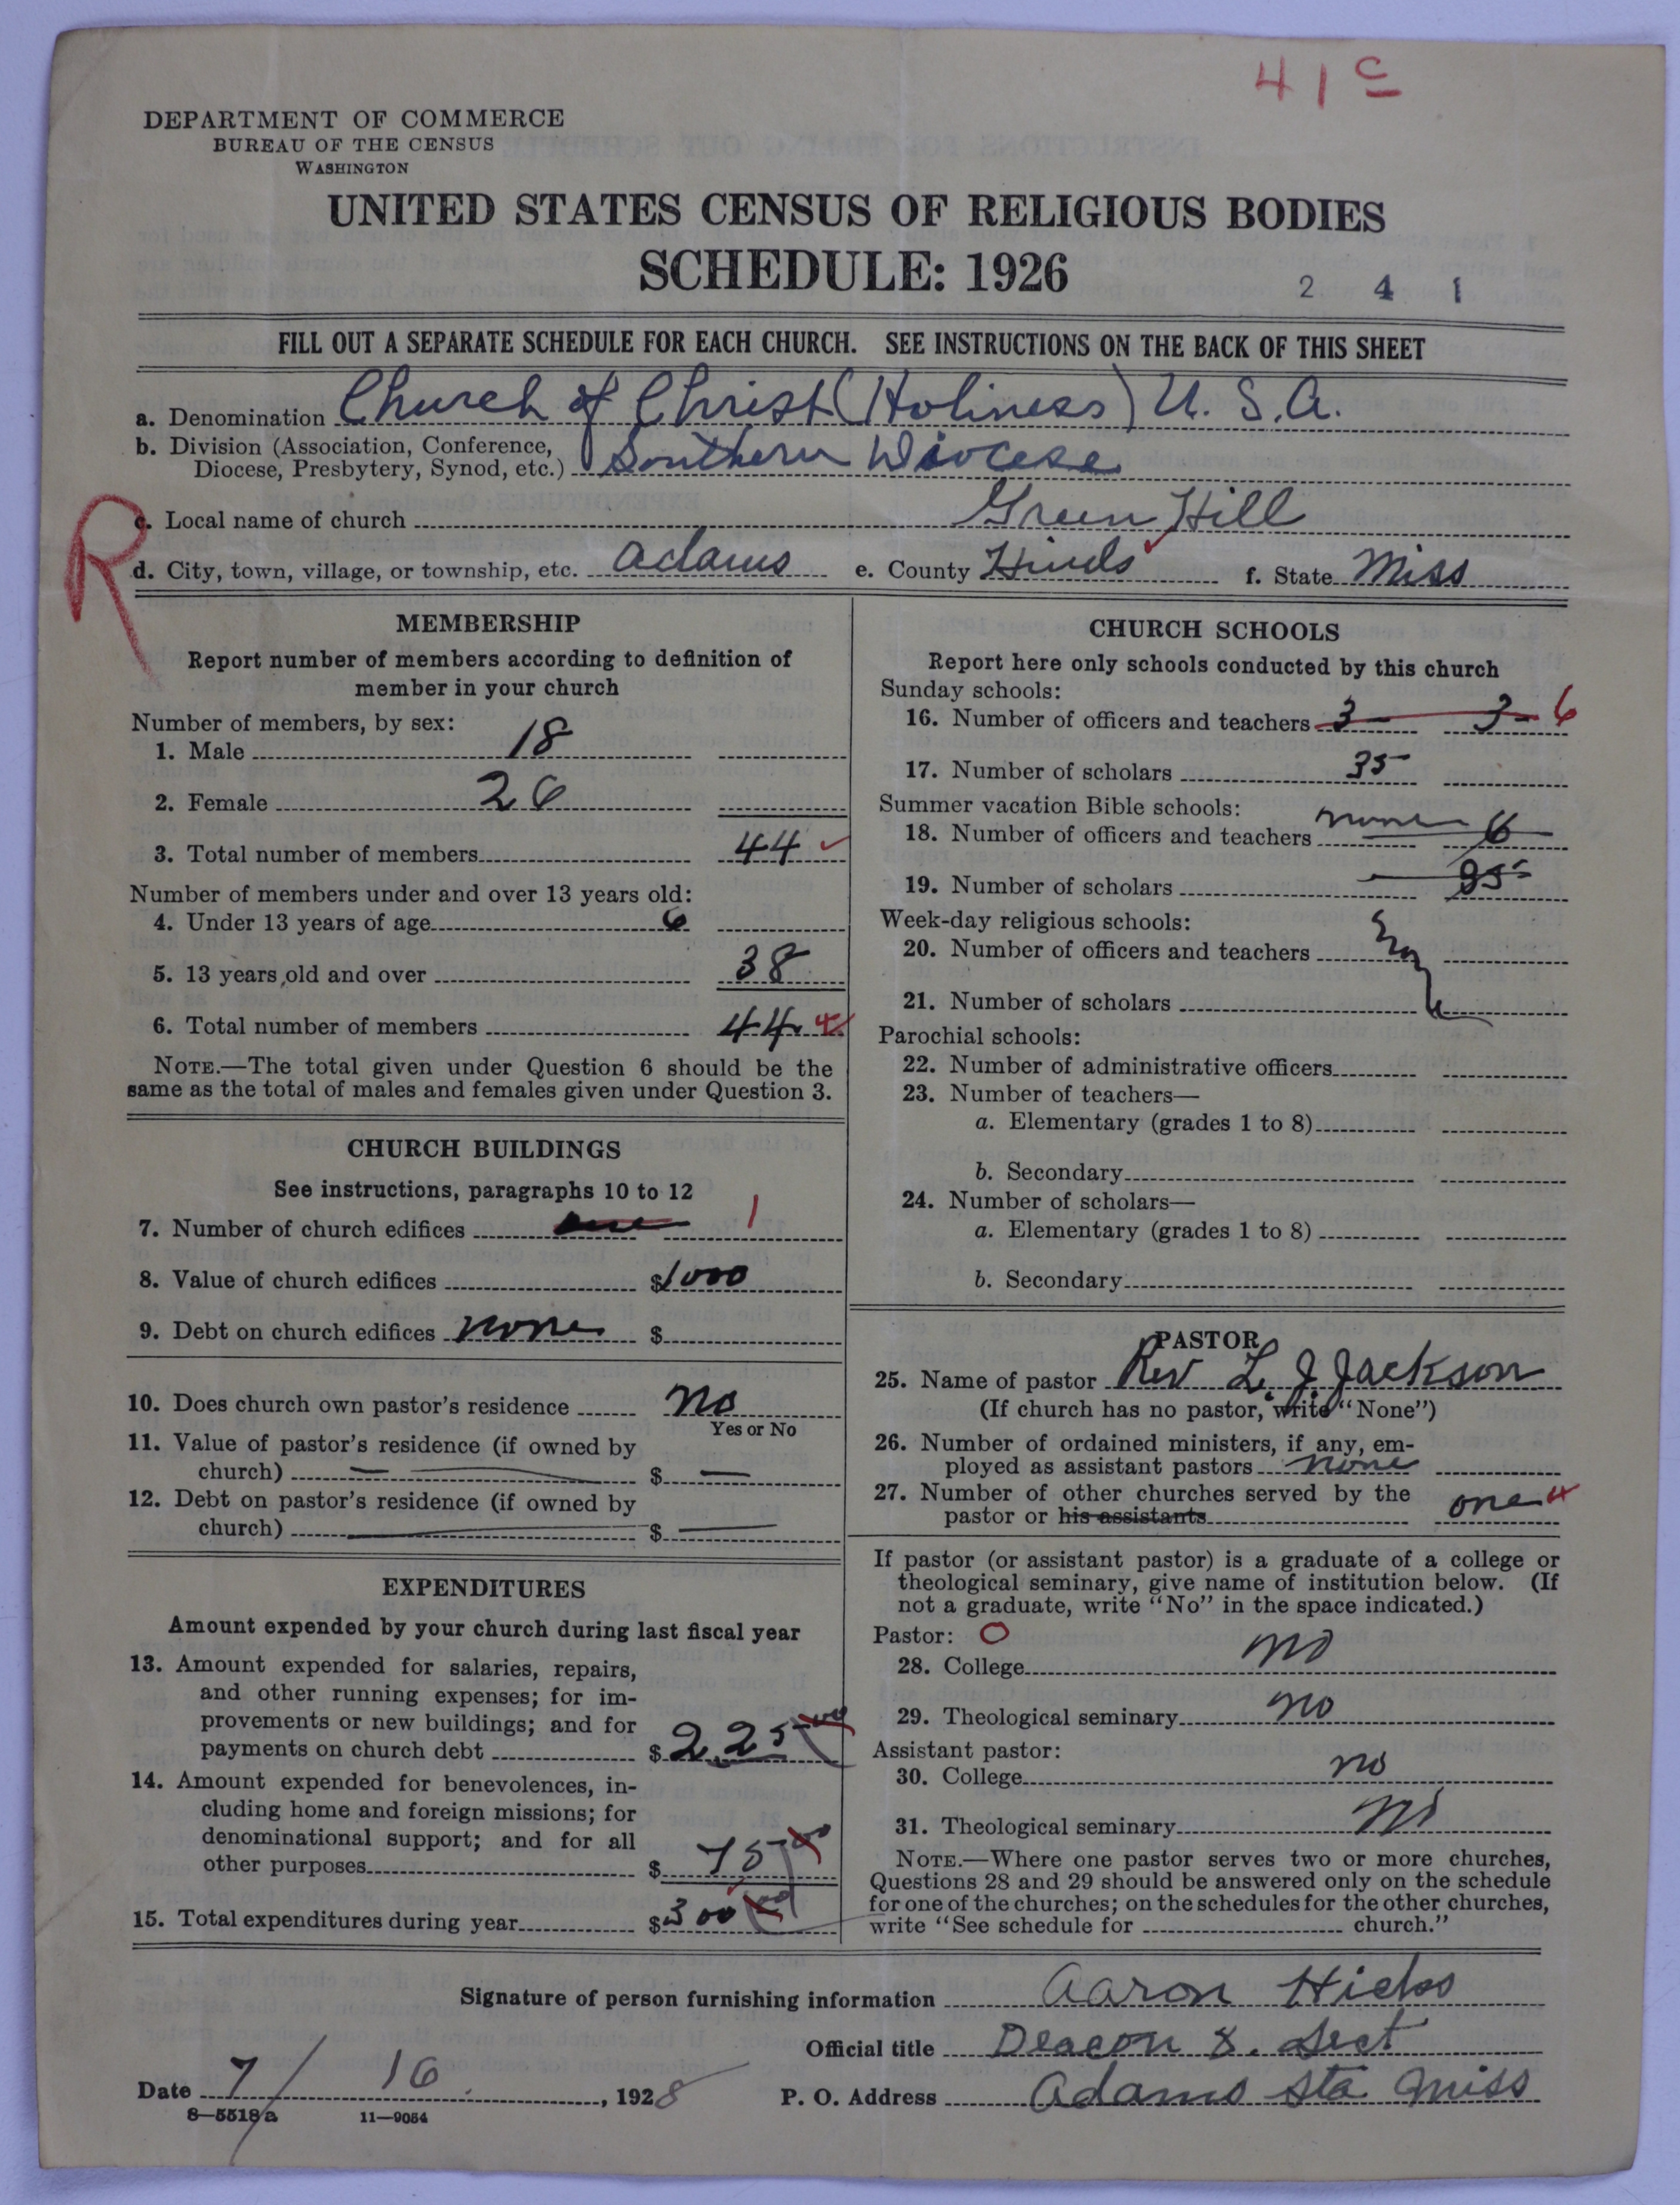 41 c
DEPARTMENT OF COMMERCE
BUREAU OF THE CENSUS
WASHINGTON
UNITED STATES CENSUS OF RELIGIOUS BODIES
SCHEDULE: 1926
2 4 1
FILL OUT A SEPARATE SCHEDULE FOR EACH CHURCH. SEE INSTRUCTIONS ON THE BACK OF THIS SHEET
a. Denomination Church of Christ (Holiness) U. S. A.
b. Division (Association, Conference,
Diocese, Presbytery, Synod, etc.) Southern Diocese
R
c. Local name of church Green Hill
d. City, town, village, or township, etc. Adams e. County Hinds f. State Miss
MEMBERSHIP
Report number of members according to definition of
member in your church
Number of members, by sex:
1. Male 18
2. Female 26
3. Total number of members 44
Number of members under and over 13 years old:
4. Under 13 years of age 6
5. 13 years old and over 38
6. Total number of members 44
NOTE.—The total given under Question 6 should be the
same as the total of males and females given under Question 3.
CHURCH BUILDINGS
See instructions, paragraphs 10 to 12
7. Number of church edifices one 1
8. Value of church edifices $1000
9. Debt on church edifices none $
10. Does church own pastor's residence No
Yes or No
11. Value of pastor's residence (if owned by
church) — $ —
12. Debt on pastor's residence (if owned by
church) — $ —
EXPENDITURES
Amount expended by your church during last fiscal year
13. Amount expended for salaries, repairs,
and other running expenses; for im-
provements or new buildings; and for
payments on church debt $ 225 00
14. Amount expended for benevolences, in-
cluding home and foreign missions; for
denominational support; and for all
other purposes $ 75 00
15. Total expenditures during year $ 300 00
CHURCH SCHOOLS
Report here only schools conducted by this church
Sunday schools:
16. Number of officers and teachers 3 — 3 — 6
17. Number of scholars 35
Summer vacation Bible schools:
18. Number of officers and teachers none 6
19. Number of scholars — 35
Week-day religious schools:
20. Number of officers and teachers
21. Number of scholars
Parochial schools:
22. Number of administrative officers
23. Number of teachers—
a. Elementary (grades 1 to 8)
b. Secondary
24. Number of scholars—
a. Elementary (grades 1 to 8)
b. Secondary
PASTOR
25. Name of pastor Rev L. J. Jackson
(If church has no pastor, write "None")
26. Number of ordained ministers, if any, em-
ployed as assistant pastors none
27. Number of other churches served by the
pastor or his assistants one
If pastor (or assistant pastor) is a graduate of a college or
theological seminary, give name of institution below. (If
not a graduate, write "No" in the space indicated.)
Pastor: O
28. College no
29. Theological seminary no
Assistant pastor:
30. College no
31. Theological seminary no
NOTE.—Where one pastor serves two or more churches,
Questions 28 and 29 should be answered only on the schedule
for one of the churches; on the schedules for the other churches,
write "See schedule for church."
Signature of person furnishing information Aaron Hicks
Official title Deacon & Sect
Date 7/16, 1928 P. O. Address Adams Sta Miss
8—5518a 11—9054